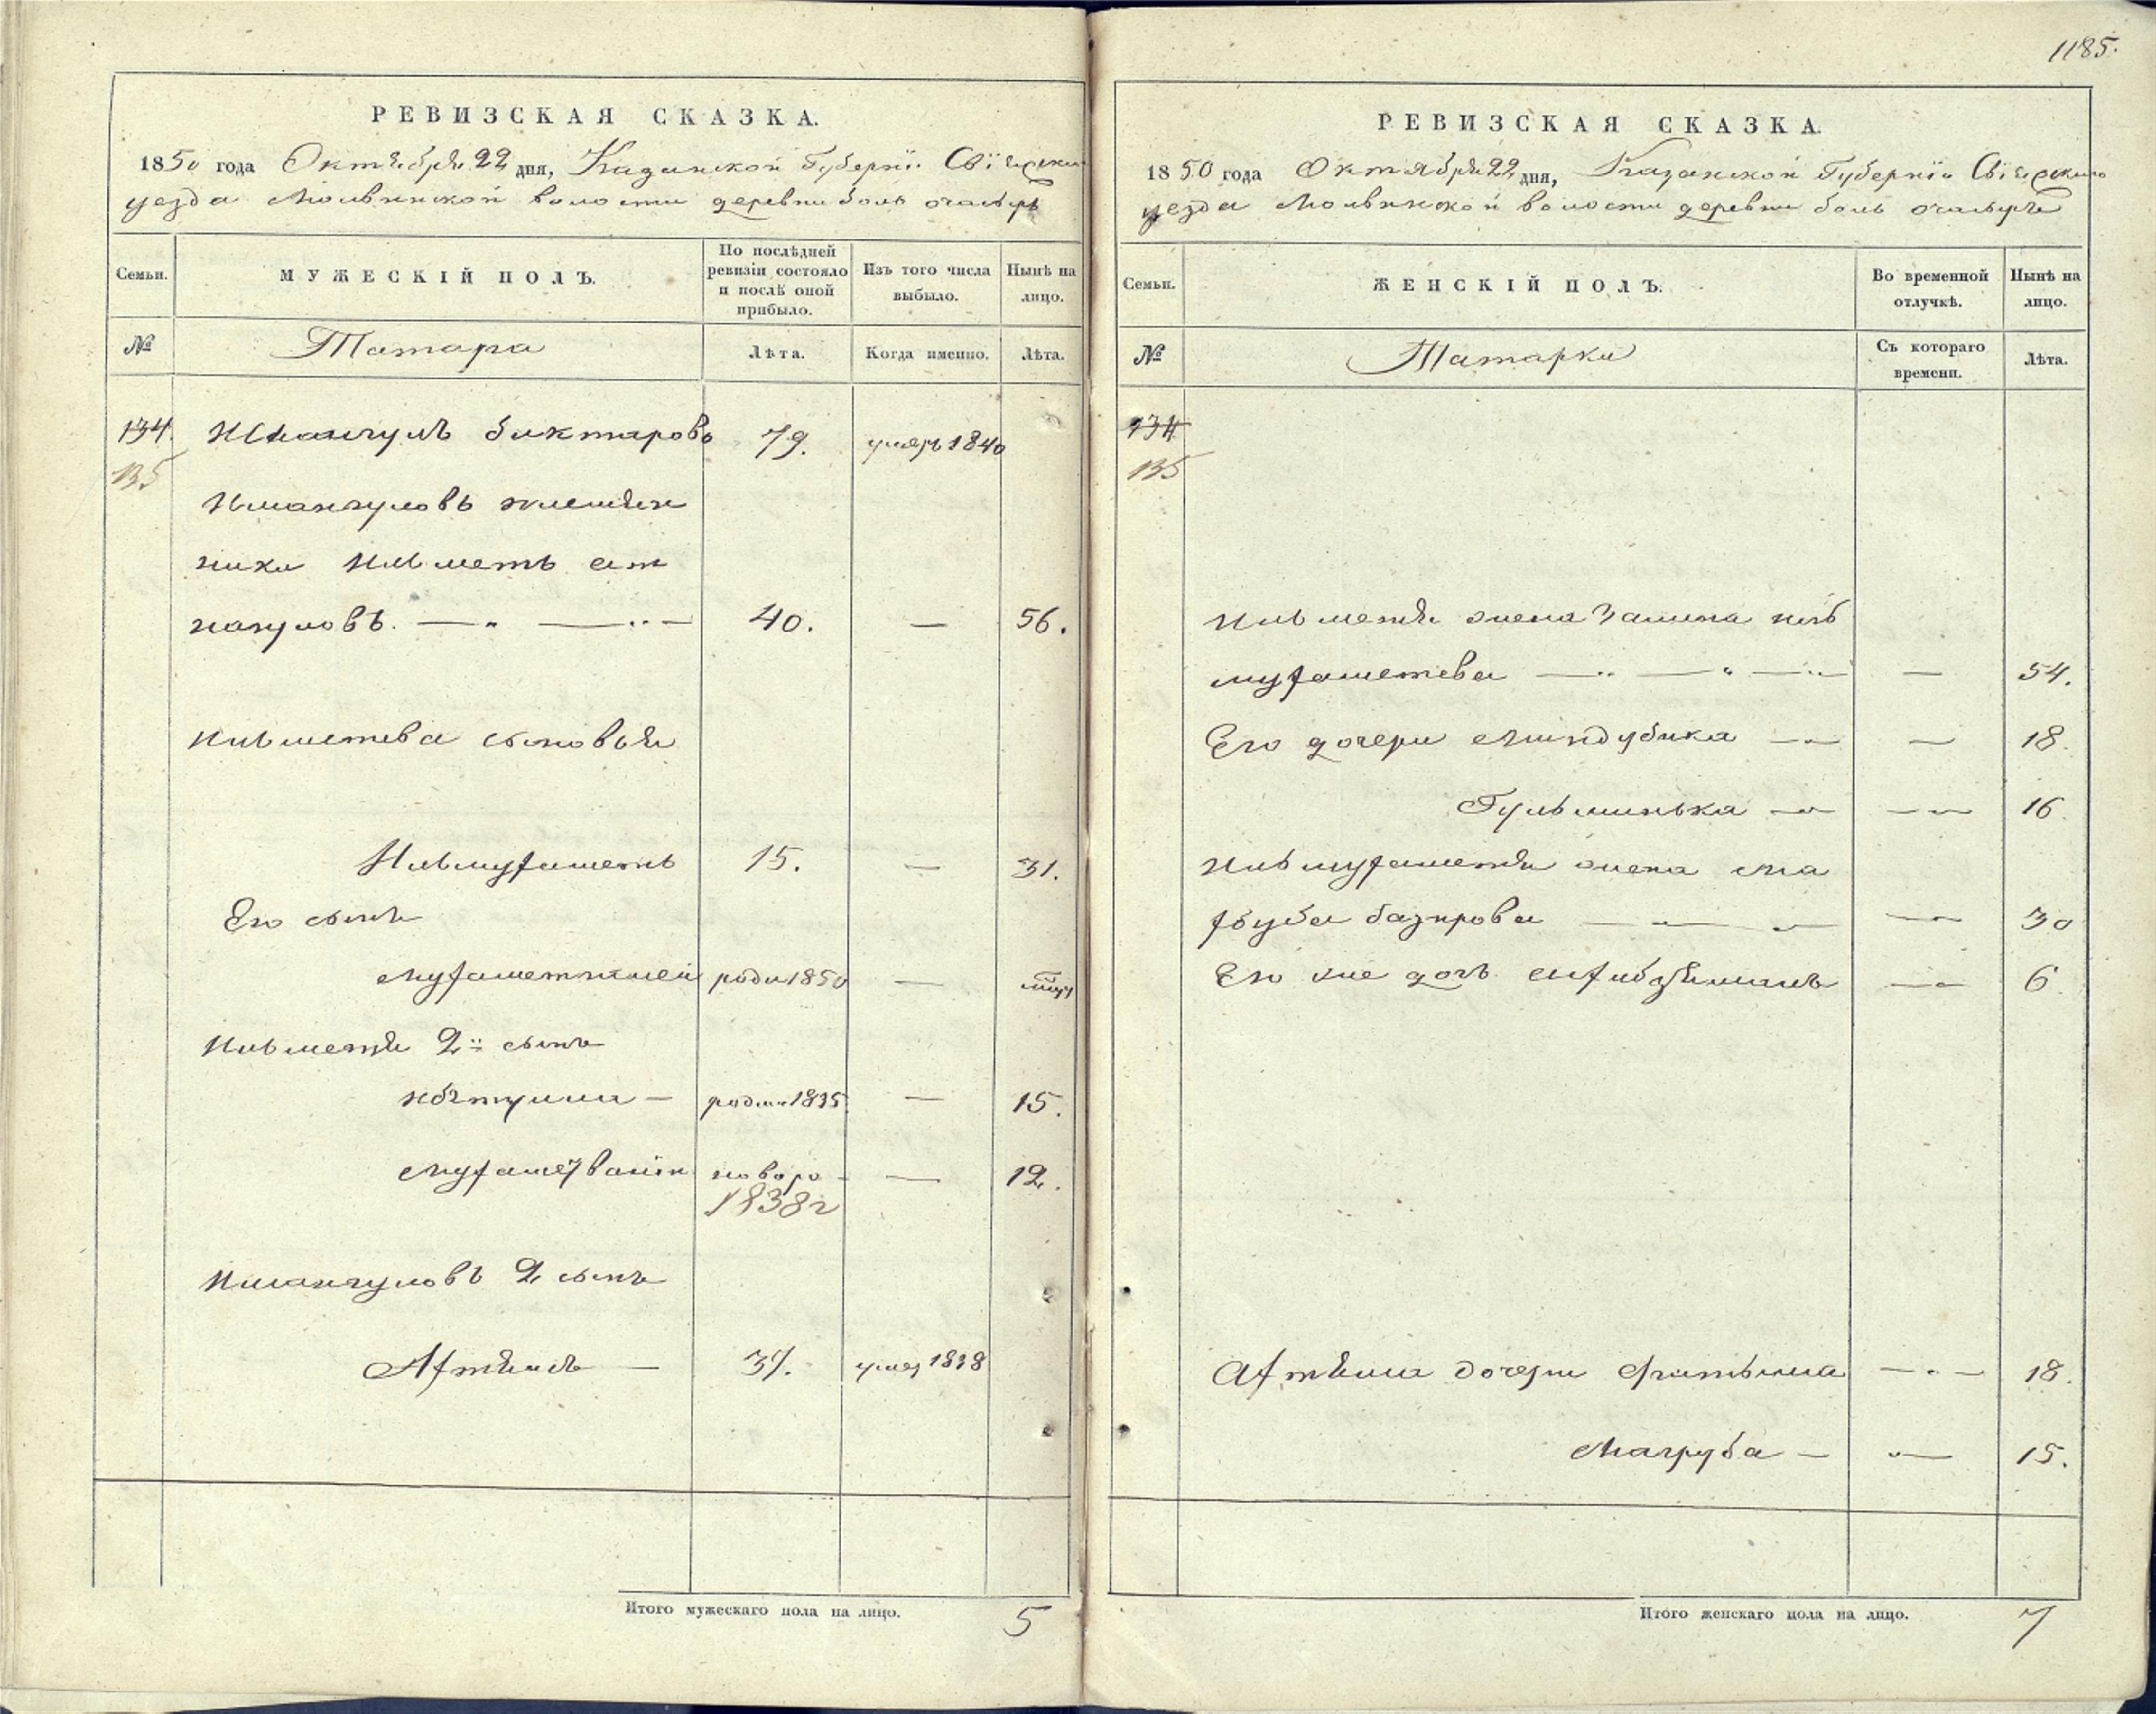 1185.
РЕВИЗСКАЯ СКАЗКА.
1850 года Октября 22 дня, Казанской Губернiи Свiяжскаго
уезда Молвинской волости деревни боль очалырь
Семьи. МУЖЕСКIЙ ПОЛЪ. По послѣдней ревизiи состояло и послѣ оной прибыло. Изъ того числа выбыло. Нынѣ на лицо.
№ Татара Лѣта. Когда именно. Лѣта.
134. Имангулъ биктаровъ 79. умеръ 1840
135
Имангуловъ племян
ники Ишметь
нагуловъ. — " — " — 40. — 56.
Ишметева сыновья
Ишмухаметь 15. — 31.
Его сынъ
Мухаметжнеи роди 1850 —
Ишметя 2й сынъ
родил 1835 — 15.
новоро - — 12.
1838г
Имангуловъ 2 сынъ
— 37. умер 1838
Итого мужескаго пола на лицо. 5
РЕВИЗСКАЯ СКАЗКА.
1850 года Октября 22 дня, Казанской Губернiи Свiяжскаго
уезда Молвинской волости деревни боль очалырь
Семьи. ЖЕНСКIЙ ПОЛЪ. Во временной отлучкѣ. Нынѣ на лицо.
№ Татарки Съ котораго времени. Лѣта.
134
135
Ишметя жена Залика ишь
мухаметева — " — " — " — 54.
Его дочери Миндубика — — 18.
Гульминька — — 16.
Ишмухаметя жена Ма
хбуба базирова — — 30
Его же дочь — 6.
дочери Фатыма — " — 18.
Магруба — — 15.
Итого женскаго пола на лицо. 7